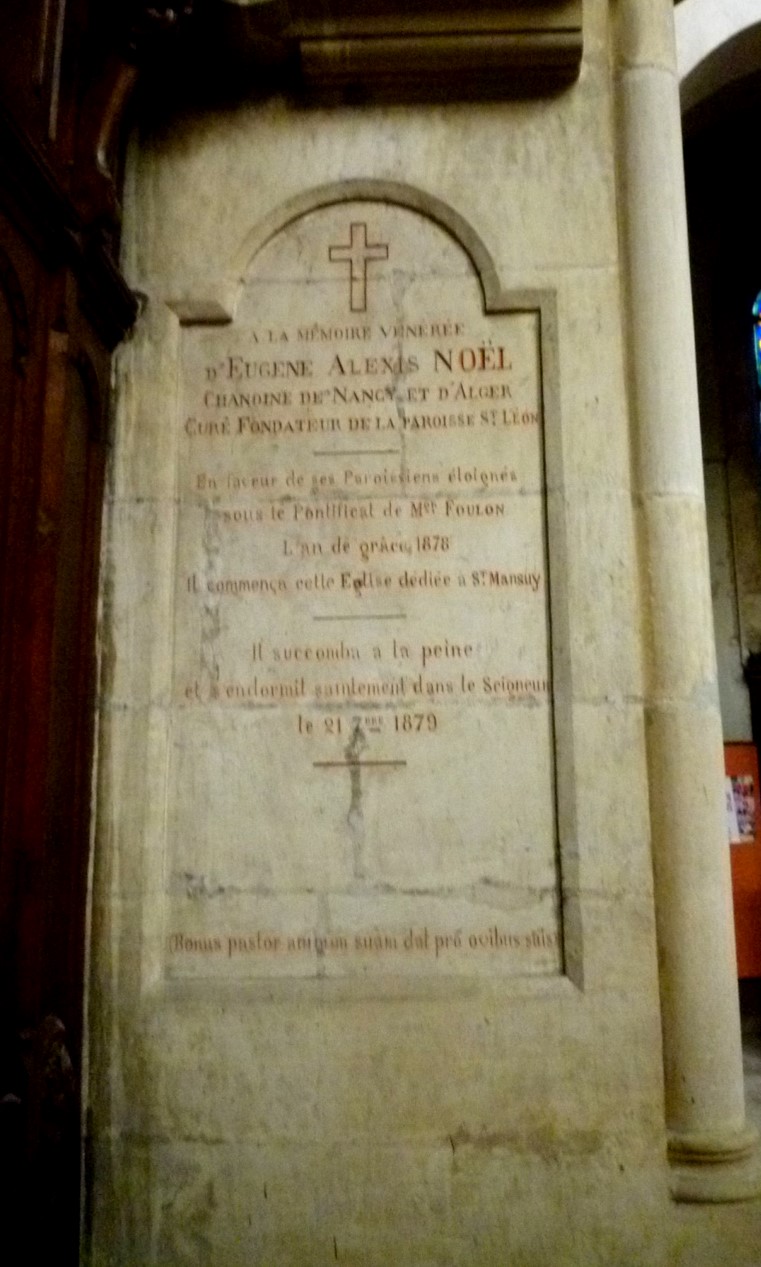 A LA MÉMOIRE VÉNÉRÉE
D'EUGENE ALEXIS NOËL
CHANOINE DE NANCY ET D'ALGER
CURÉ FONDATEUR DE LA PAROISSE ST LÉON
En faveur de ses Paroissiens éloignés
sous le Pontificat de Mgr FOULON
L'an de grâce 1878
Il commença cette Eglise dédiée a ST Mansuy
Il succomba a la peine
et s'endormit saintement dans le Seigneur
le 21 7bre 1879
(Bonus pastor animam suam dat pro ovibus suis)